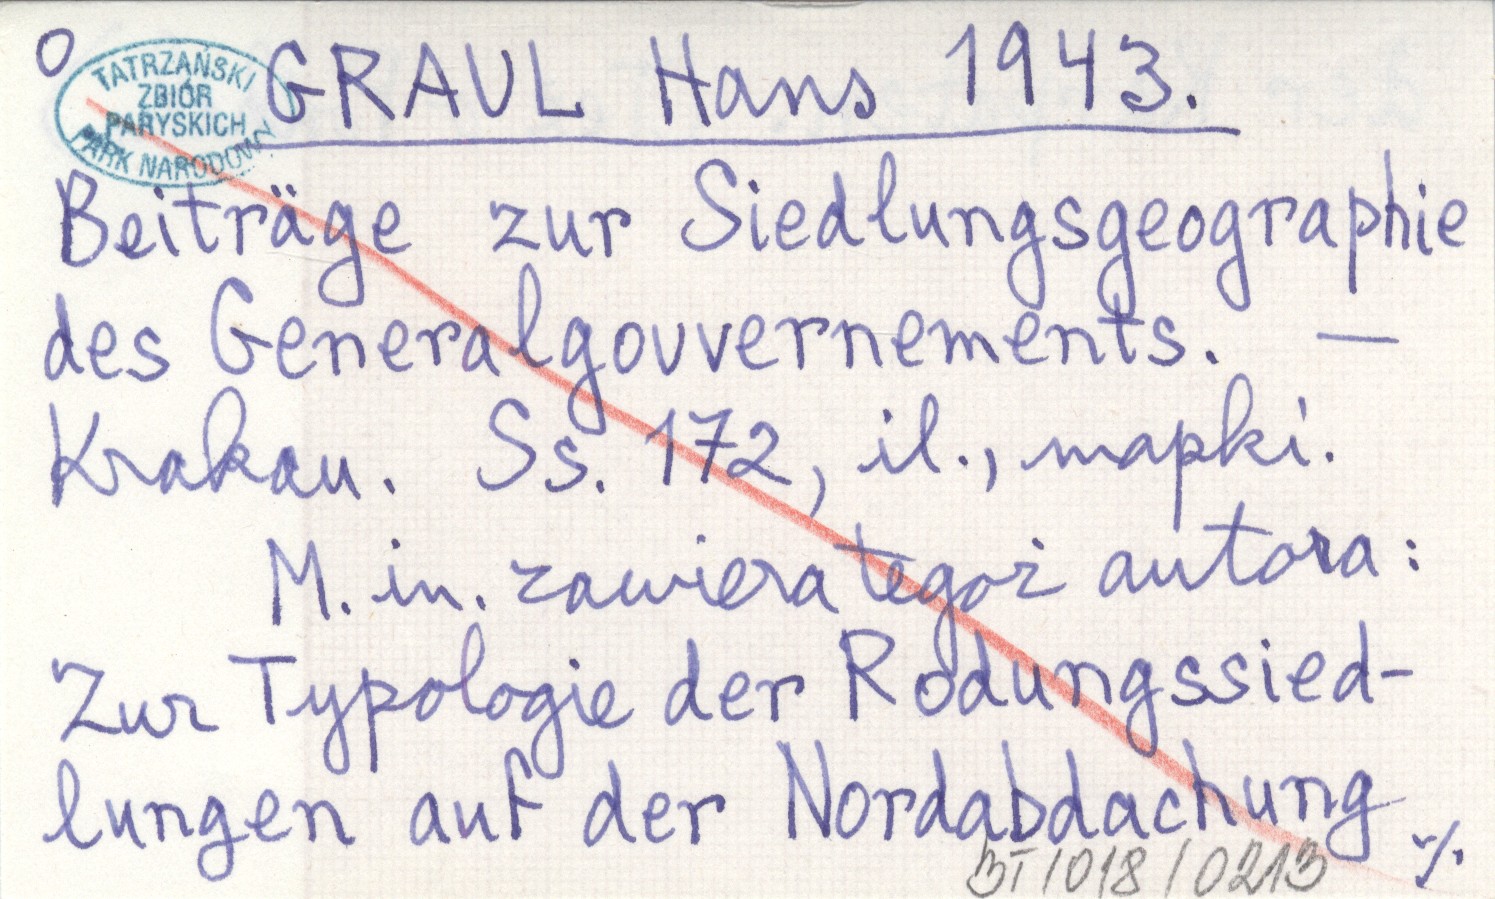 O GRAUL Hans 1943.
TATRZAŃSKI
ZBIÓR
PARYSKICH
PARK NARODOWY
Beiträge zur Siedlungsgeographie
des Generalgouvernements. —
Krakau. Ss. 172, il., mapki.
M. in. zawiera tegoż autora:
Zur Typologie der Rodungssied-
lungen auf der Nordabdachung ./.
BT/018/0213